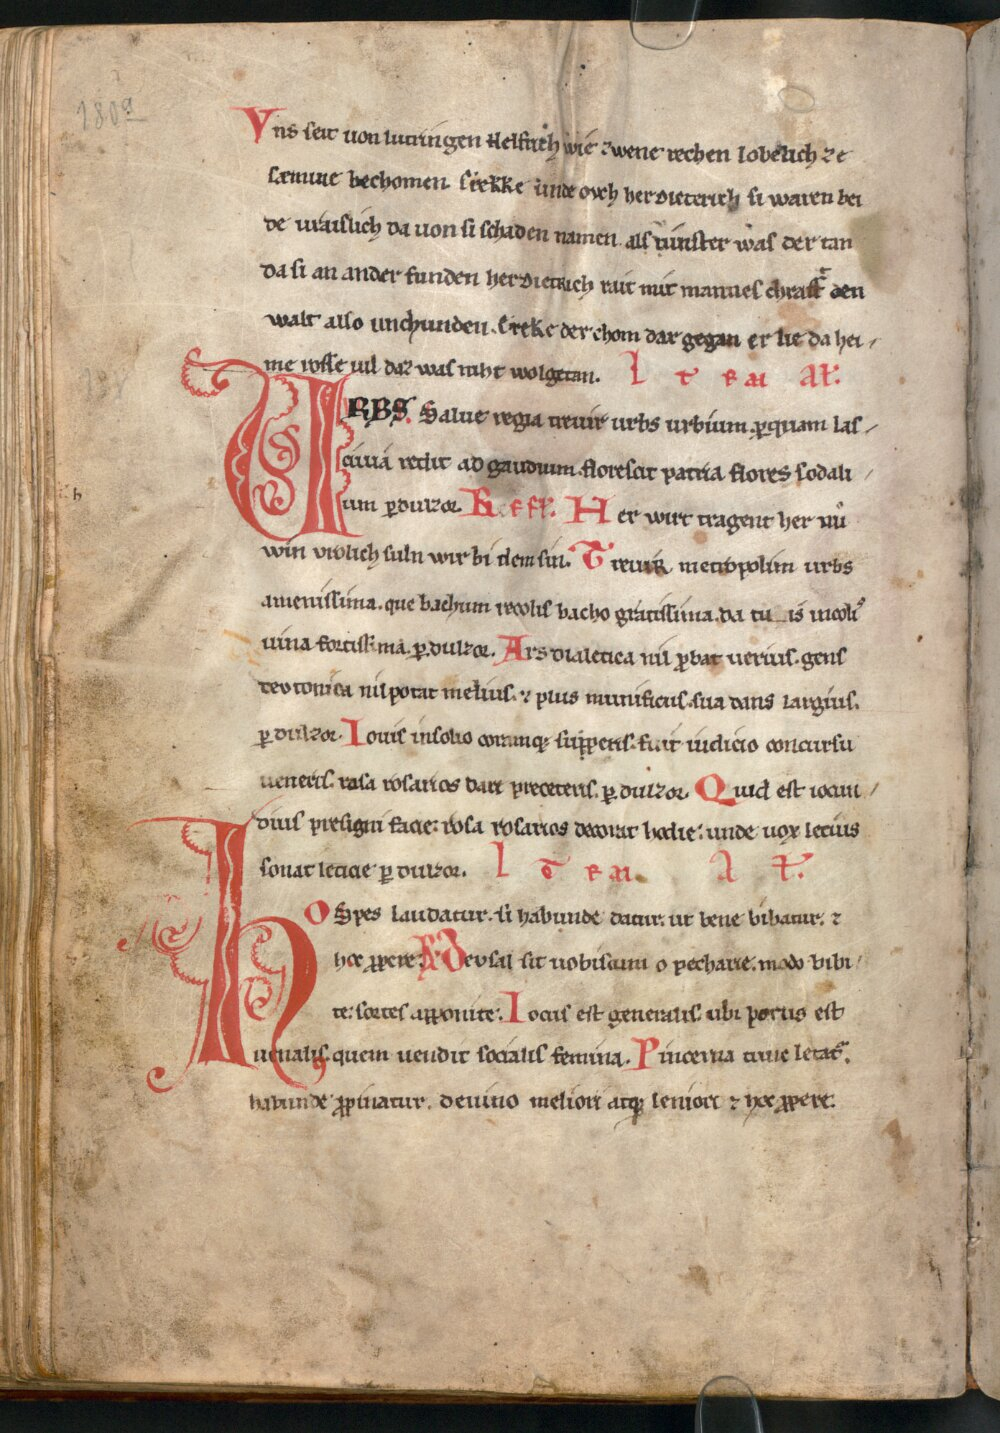 Vns seit uon lutringen Helfrich wie zwene rechen lobelich ze
sæmine bechomen. Erekke unde ovch her dieterich si waren bei
de uraislich da uon si schaden namen. als uinster was der tan
da si an ander funden her dietrich rait mit mannes chraft den
walt also unchunden. Ereke der chom dar gegan er lie da hei-
me rosse uil daz was niht wolgetan. ITEM AL.
URBS. Salue regia treuir urbs urbium. per quam las-
ciuia redit ad gaudium. florescit patria flores sodali
um per dulzor. Refl. Her wirt tragent her nu
win vrolich suln wir bi dem sin. Treuir metropolim urbs
amenissima. que bachum recolis bacho gratissima. da tu is incolis
uina fortissima. per dulzor. Ars dialetica nil probat uerius. gens
teotonica nil potat melius. & plus munificus. sua dans largius.
per dulzor. Iouis in solio coramque superis. fuit iudicio concursu
ueneris. rosa rosarios dari preceteris. per dulzor. Quid est iocun-
dius presigni facie. rosa rosarios decorat hodie. unde uox letius
sonat leticie per dulzor. ITEM AL.
HOSpes laudatur. si habunde datur. ut bene bibatur. &
hoc propere. Ref. Deus sal sit uobiscum o pecharie. modo bibi-
te. sortes apponite. Locus est generalis. ubi porus est
uenalis. quem uendit socialis femina. Pincerna tunc letatur.
habunde propinatur. de uino meliori atque leniori & hoc propere.
180a